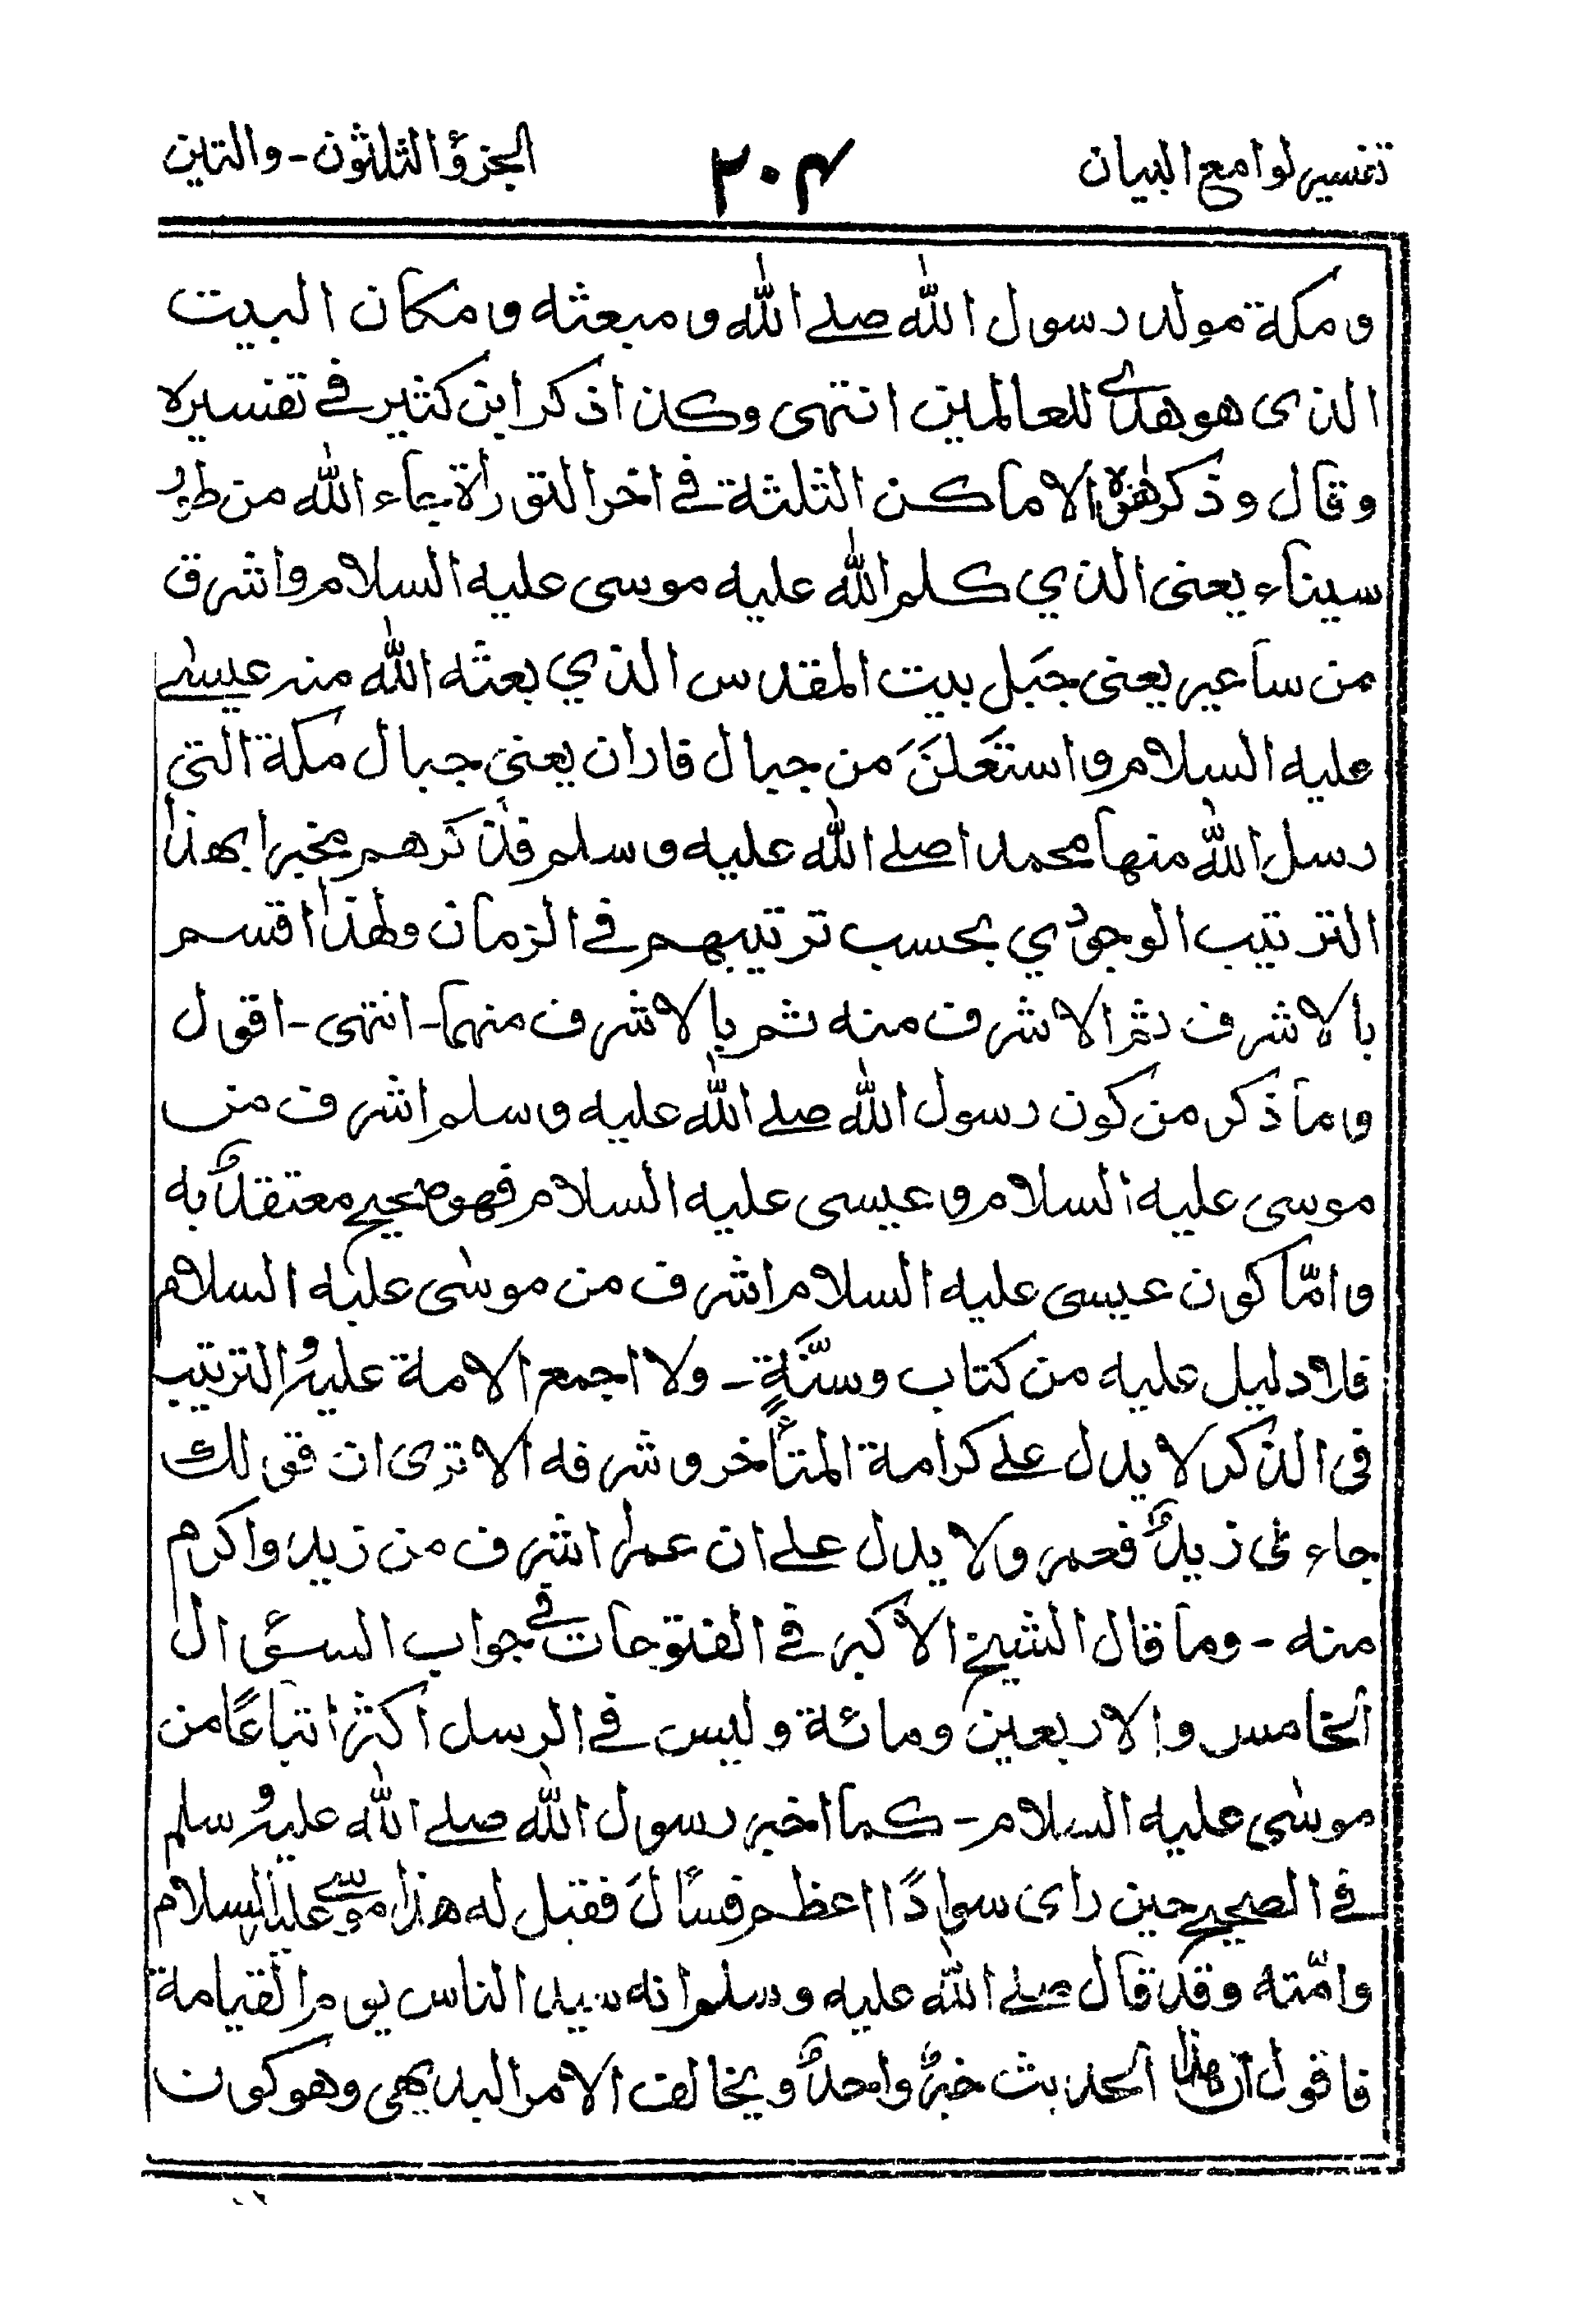 تفسير لوامع البيان ٢٠٤ الجزؤ الثلثون - والتين
ومكة مولد رسول الله صلے الله ومبعثه ومكان البيت
الذى هو هدى للعالمين انتهى وكذا ذكر ابن كثير فے تفسيره
وقال وذكر هذه الاماكن الثلثة فے اخر التوراة جاء الله من طور
سيناء يعنى الذي كلم الله عليه موسى عليه السلام واشرق
من ساعير يعنى جبَل بيت المقدس الذي بعثه الله منه عيسے
عليه السلام واستَعلَنَ من جبال فاران يعنى جبال مكة التى
رسل الله منها محمدا صلے الله عليه وسلم فذكرهم مخبرا بهذا
الترتيب الوجودي بحسب ترتيبهم فے الزمان ولهذا اقسم
بالاشرف ثم الاشرف منه ثم بالاشرف منهما - انتهى - اقول
وما ذكر من كون رسول الله صلے الله عليه وسلم اشرف من
موسى عليه السلام وعيسى عليه السلام فهو صحيح معتقدٌ به
وامّا كون عيسى عليه السلام اشرف من موسٰى عليه السلام
فلا دليل عليه من كتاب وسنّةٍ - ولا اجمع الامة عليه والترتيب
فى الذكر لا يدل علے كرامة المتأخر وشرفه الا ترى ان قولك
جاءنى زيدٌ فعمر ولا يدل علے ان عمرا اشرف من زيد واكرم
منه - وما قال الشيخ الاكبر فے الفتوحات فے جواب السؤال
الخامس والاربعين ومائة وليس فے الرسل أكثر اتباعًا من
موسٰى عليه السلام - كما اخبر رسول الله صلے الله عليه وسلم
فے الصحيح حين راى سوادًا اعظم فسأل فقيل له هذا موسے عليه السلام
وامّته وقد قال صلے الله عليه وسلم انه سيد الناس يوم القيامة
فاقول ان هذا الحديث خبرٌ واحدٌ ويخالف الامر البديهى وهو كون